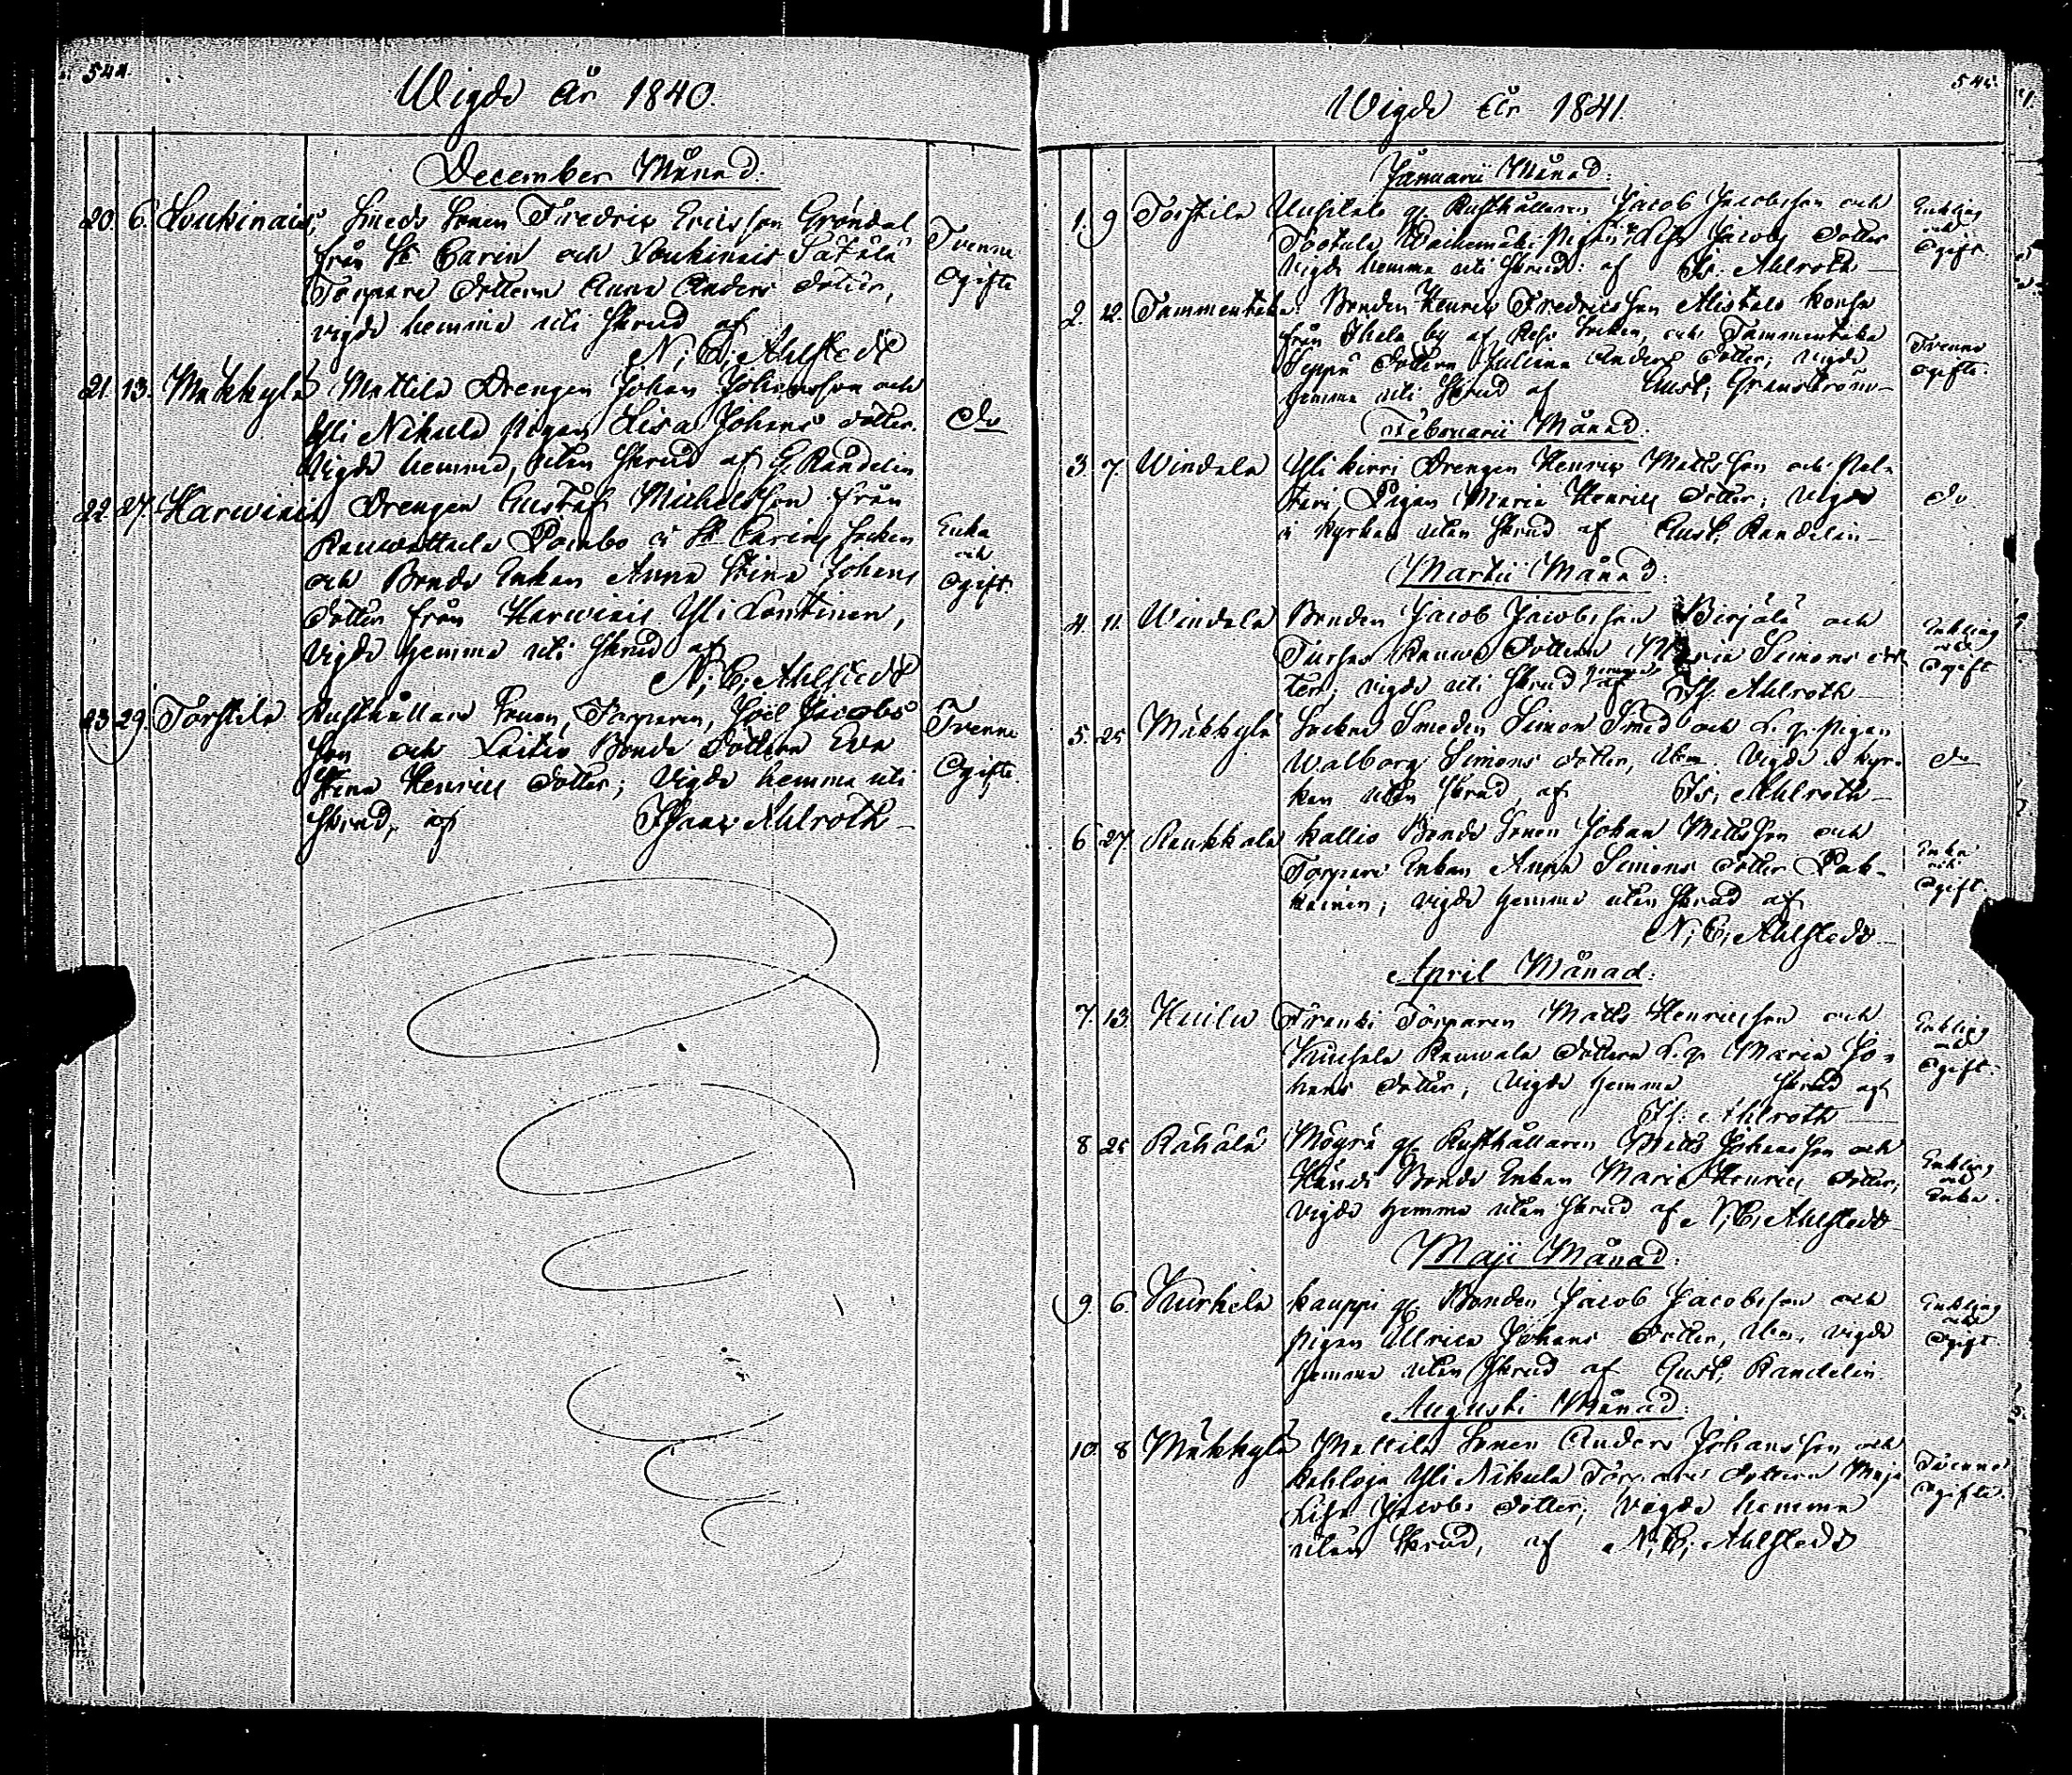 544.
Wigde År 1840.
December Månad.
20. 6. Loukinais, Smeds Sonen Fredric Ericsson Gröndal
från St Carin och Loukinais Sätälä
Torpare Dottern Anna Anders dotter,
vigde hemma uti skrud af
N; C; Ahlstedt
Tvenne
Ogifte
21. 13. Mäkkylä Mattila Drengen Johan Johansson och
Yli Nikula pigan Lisa Johans dotter.
Vigde hemma, utan skrud af G. Randelin
do
22. 27. Harwinis Drengen Gustaf Michelsson från
Rauwattula i St Carins socken
och Bonde Enkan Anna Stina Johans
dotter från Harwinis Yli Lontinen,
vigde hemma uti skrud af
N; C; Ahlstedt
Enka
och
Ogift.
23. 29. Torstila Rusthållare Sonen, Torparen, Joel Jacobs
son och Laitis Bonde Dottern Eva
Stina Henrics dotter; Vigde hemma uti
skrud, af Isaac Ahlroth
Tvenne
Ogifte.
545.
Wigde År 1841.
Januarii Månad.
1. 9 Torstila Uusitalo gl. Rusthållaren Jacob Jacobsson och
Tootula Waihemäki Pigan Lisa Jacobs dotter
vigde hemma uti skrud: af Is. Ahlroth
Enkling
och
Ogift.
2. 12. Tammentaka Bonden Henric Fredricsson Alistalo
från by af Reso Socken, och Tammentaka
Seppä dottern Juliana Anders dotter, vigde
hemma uti skrud af Gust; Granström
Tvenne
ogifte.
Februarii Månad.
3. 7. Windala Yli kirri Drengen Henric Mattsson och
Pigan Maria Henrics dotter; vigde
i kyrkan utan skrud af Gust; Randelin
do
Martii Månad.
4. 11. Windala Bonden Jacob Jacobsson Birjälä och
Dottern Maria Simons dot
ter; vigde uti skrud hemma af Is. Ahlroth
Enkling
och
Ogift
5. 25 Mäkkylä Socken Smeden Simon Smed och d. gs. pigan
Walborg Simons dotter, vigde i kyr-
kan utan skrud, af Is; Ahlroth
do
6. 27. Raukkala Kallio Bonde Sonen Johan Mattsson och
Torpare Enkan Anna Simons dotter Pak-
kainen; vigde hemma utan skrud af
N; C; Ahlstedt
Enka
och
Ogift.
April Månad.
7. 13. Huilu Franki Torparen Matts Henricsson och
Rauwala dottern d. gs. Maria Jo-
hans dotter; vigde hemma skrud af
Is. Ahlroth
Enkling
och
Ogift.
8 25 Rähälä Möyrä gl. Rusthållaren Matts Johansson och
Bonde Enkan Maria Henrics dotter,
vigde hemma utan skrud af N; C; Ahlstedt
Enkling
och
Enka.
Maji Månad.
9. 6. Kurkela Kauppi gl. Bonden Jacob Jacobsson och
pigan Ulrica Johans dotter, vigde
hemma utan skrud af Gust; Randelin
Enkling
och
Ogift.
Augusti Månad.
10. 8 Mäkkylä Mattila Sonen Anders Johansson och
Yli Nikula Torpare dottern Maja
Lisa Jacobs dotter; vigde hemma
utan skrud, af N; C; Ahlstedt
Tvenne
ogifte.